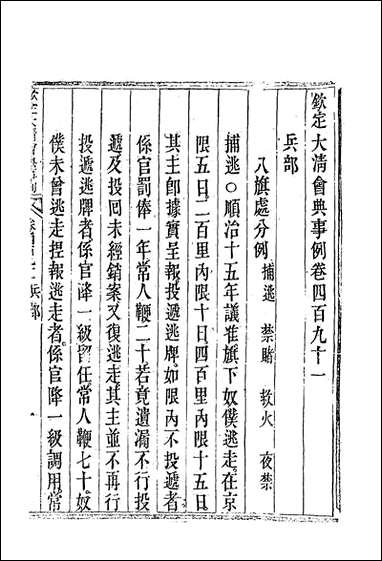 欽定大清會典事例卷四百九十一
兵部
八旗處分例 捕逃 禁賭 救火 夜禁
捕逃○順治十五年議准旗下奴僕逃走在京
限五日二百里內限十日四百里內限十五日
其主卽據實呈報投遞逃牌如限內不投遞者
係官罰俸一年常人鞭二十若竟遺漏不行投
遞及投回未經銷案又復逃走其主並不再行
投遞逃牌者係官降一級留任常人鞭七十奴
僕未曾逃走揑報逃走者係官降一級調用常
兵部